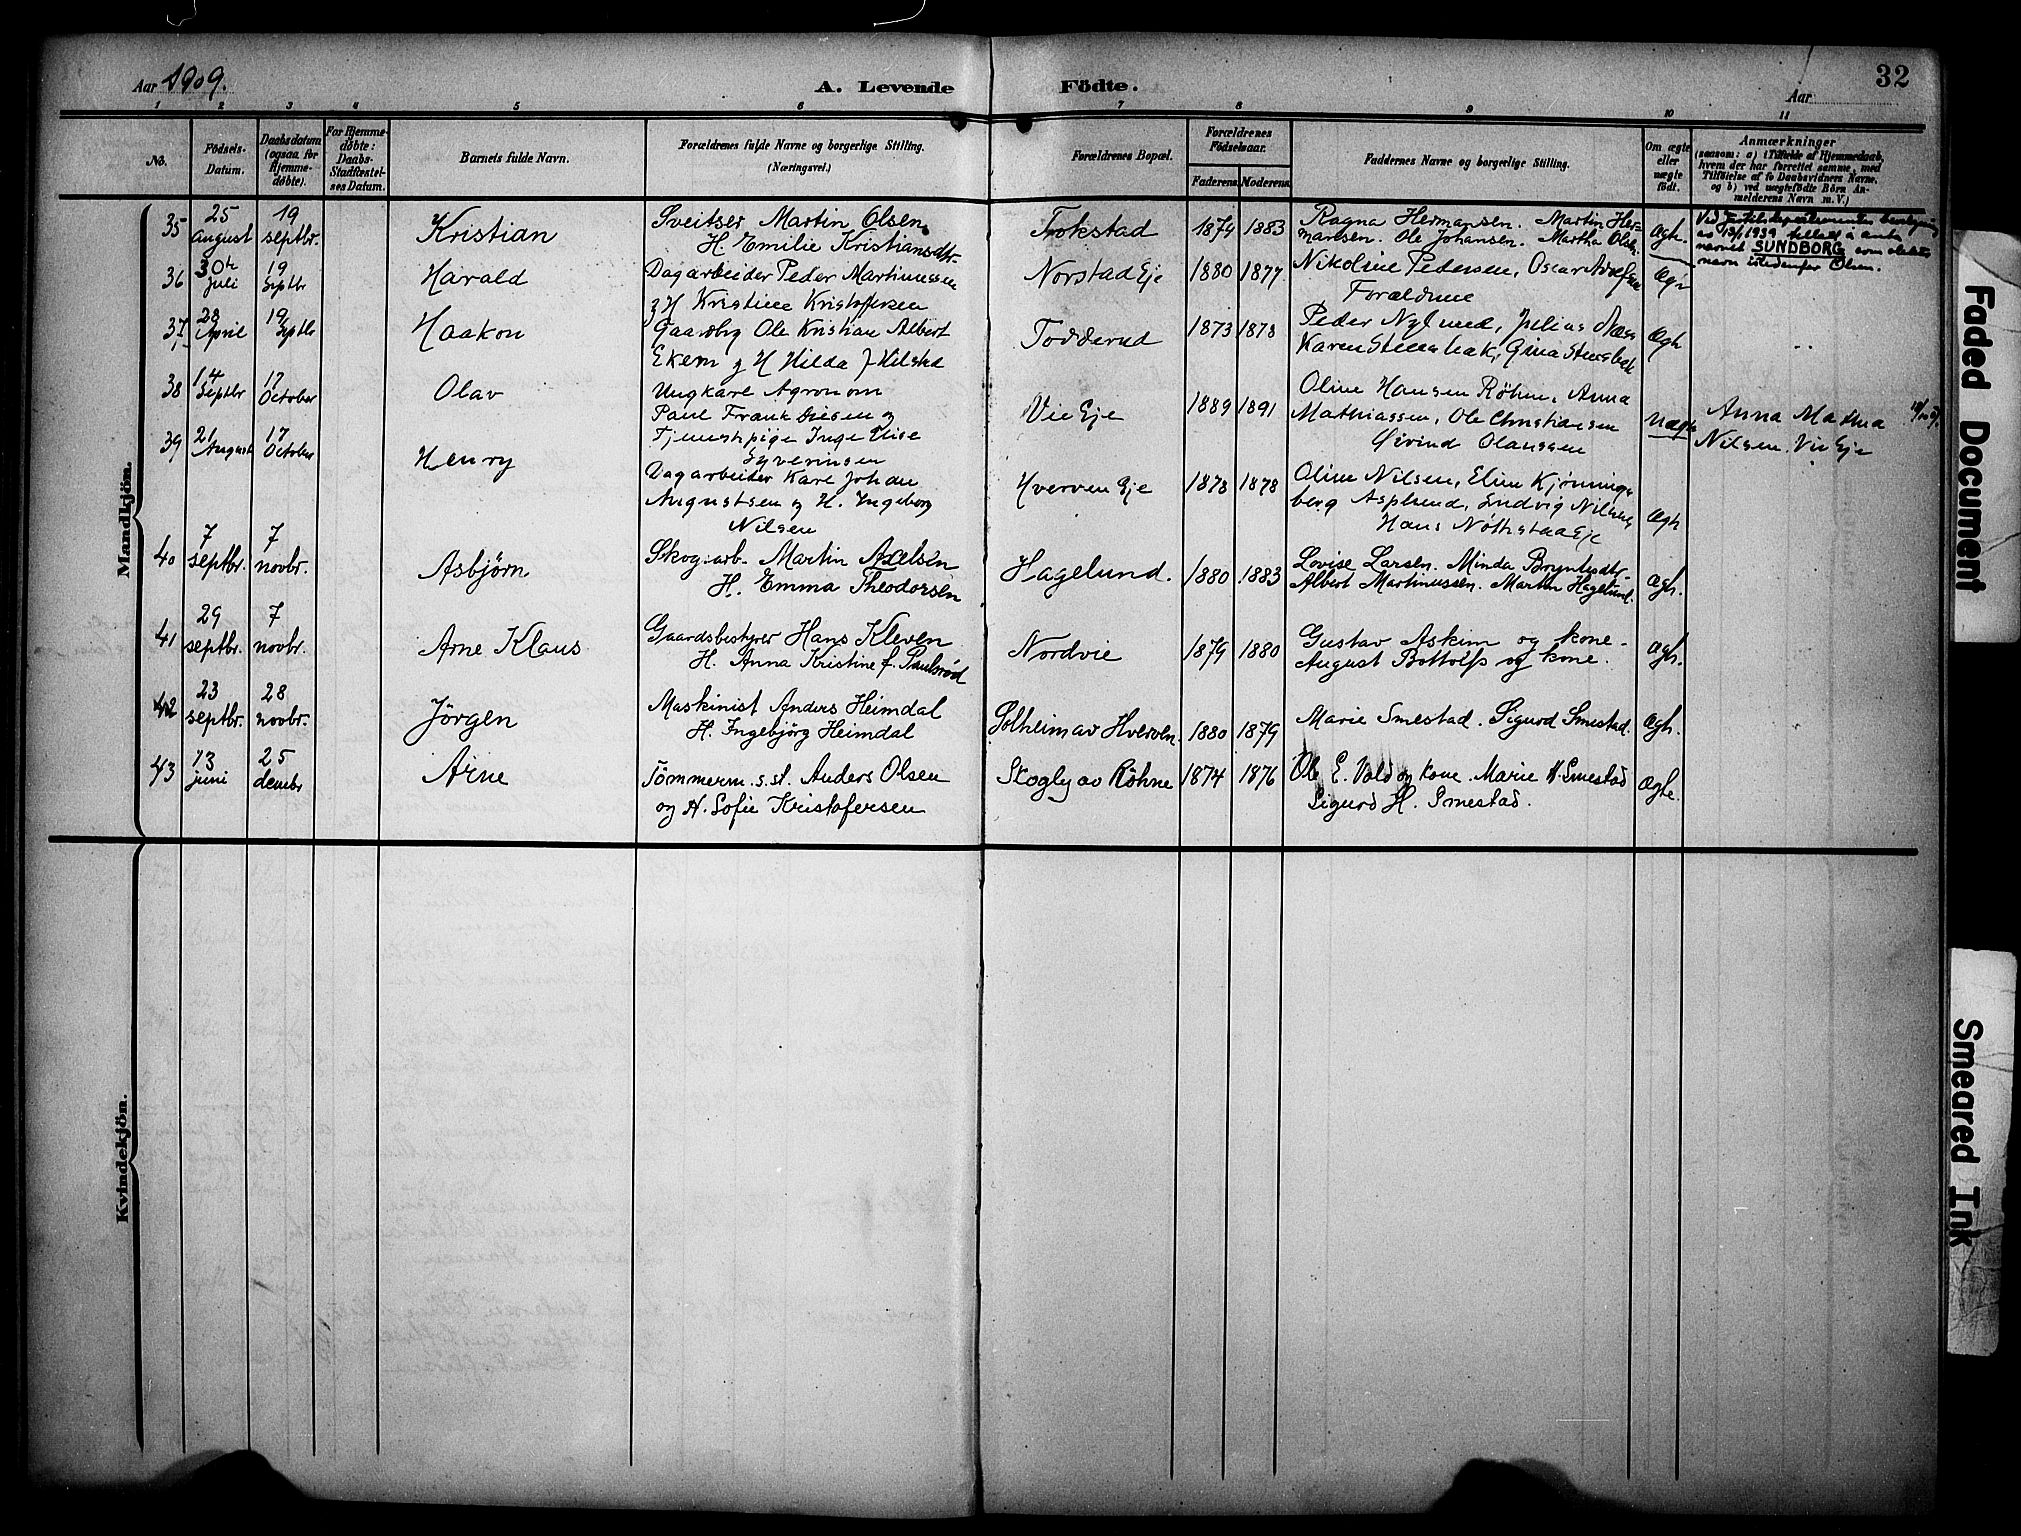 Aar 1909.
A. Levende Födte.
Aar
32
1 2 3 4 5 6 7 8 9 10 11
No.
Födsels-
Datum.
Daabsdatum
(ogsaa for
Hjemme-
døbte).
For Hjemme-
døbte:
Daabs-
Stadfæstel-
ses Datum.
Barnets fulde Navn.
Forældrenes fulde Navne og borgerlige Stilling.
(Næringsvei.)
Forældrenes Bopæl.
Forældrenes
Födselsaar.
Faderens. Moderens.
Faddernes Navne og borgerlige Stilling.
Om ægte
eller
uægte
født.
Anmærkninger
(saasom: a) i Tilfælde af Hjemmedaab,
hvem der har forrettet samme, med
Tilføielse af to Daabsvidners Navne,
og b) ved uægtefödte Börn An-
melderens Navn m. V.)
Mandkjön.
35
25
august
19
septbr.
Kristian
Sveitser Martin Olsen
H. Emilie Kristiansdtr.
Trokstad
1874 1883
Ragna Hermansen. Martin Her-
mansen. Ole Johansen. Martha Olsn.
Ægh.
Ved
av 13/1 1939
navnet SUNDBORG som slekts-
navn istedenfor Olsen.
36
30te
juli
19
Septbr
Harald
Dagarbeider Peder Martinussen
og H Kristine Kristoffersen
Norstad Eje
1880 1877
Nikoline Pedersen, Oscar
Forældrene
37
28
April
19
Septbr
Haakon
Gaardbr Ole Kristian Albert
Ekem og H Hilda f Hilstad
Todderud
1873 1878
Peder Nylund, Julius Næss
Karen Steensbak, Gina Stensbak
Ægh
38
14
Septbr
17
October
Olav
Ungkarl Agronom
Paul Frank Diesen og
Tjenestpige Inga Elise
Syverinsen
Vie Eje
1889 1891
Oline Hansen Røhne, Anna
Mathiassen, Ole Christiansen
Øivind Olaussen
Uægte
Anna Mathea
Nilsen. Vie Eje
39
21
August
17
October
Henry
Dagarbeider Karl Johan
Augustsen og H. Ingeborg
Nilsen
Hverven Eje
1878 1878
Oline Nilsen, Elin Kjønnings-
berg Asplund, Ludvig Nilsen,
Hans Nøthstad Eje
Ægh
40
7
septbr.
7
novbr.
Asbjørn
Skog.arb. Martin Axelsen
H. Emma Theodorsen
Hagelund.
1880 1883
Lovise Larsen. Minda Bryntesdtr.
Albert Martinussen. Martin Hagelund.
Ægh.
41
29
septbr.
7
novbr.
Arne Klaus
Gaardsbestyrer Hans Kleven
H. Anna Kristine f. Paulsrød
Nordvie
1879 1880
Gustav Askim og kone.
August Bottolfs og kone.
Ægh.
42
23
septbr.
28
novbr.
Jörgen
Maskinist Anders Heimdal
H. Ingebjörg Heimdal
Solheim av Hverven.
1880 1879
Marie Smestad. Sigurd Smestad.
Ægh.
43
13
juni
25
decmbr
Arne
Tömmerm. s.st. Anders Olsen
og H. Sofie Kristofersen
Skogly av Röhne
1874 1876
Ole E. Vold og kone. Marie H. Smestad
Sigurd H. Smestad.
Ægte.
Kvindekjön.
Faded Document
Smeared Ink